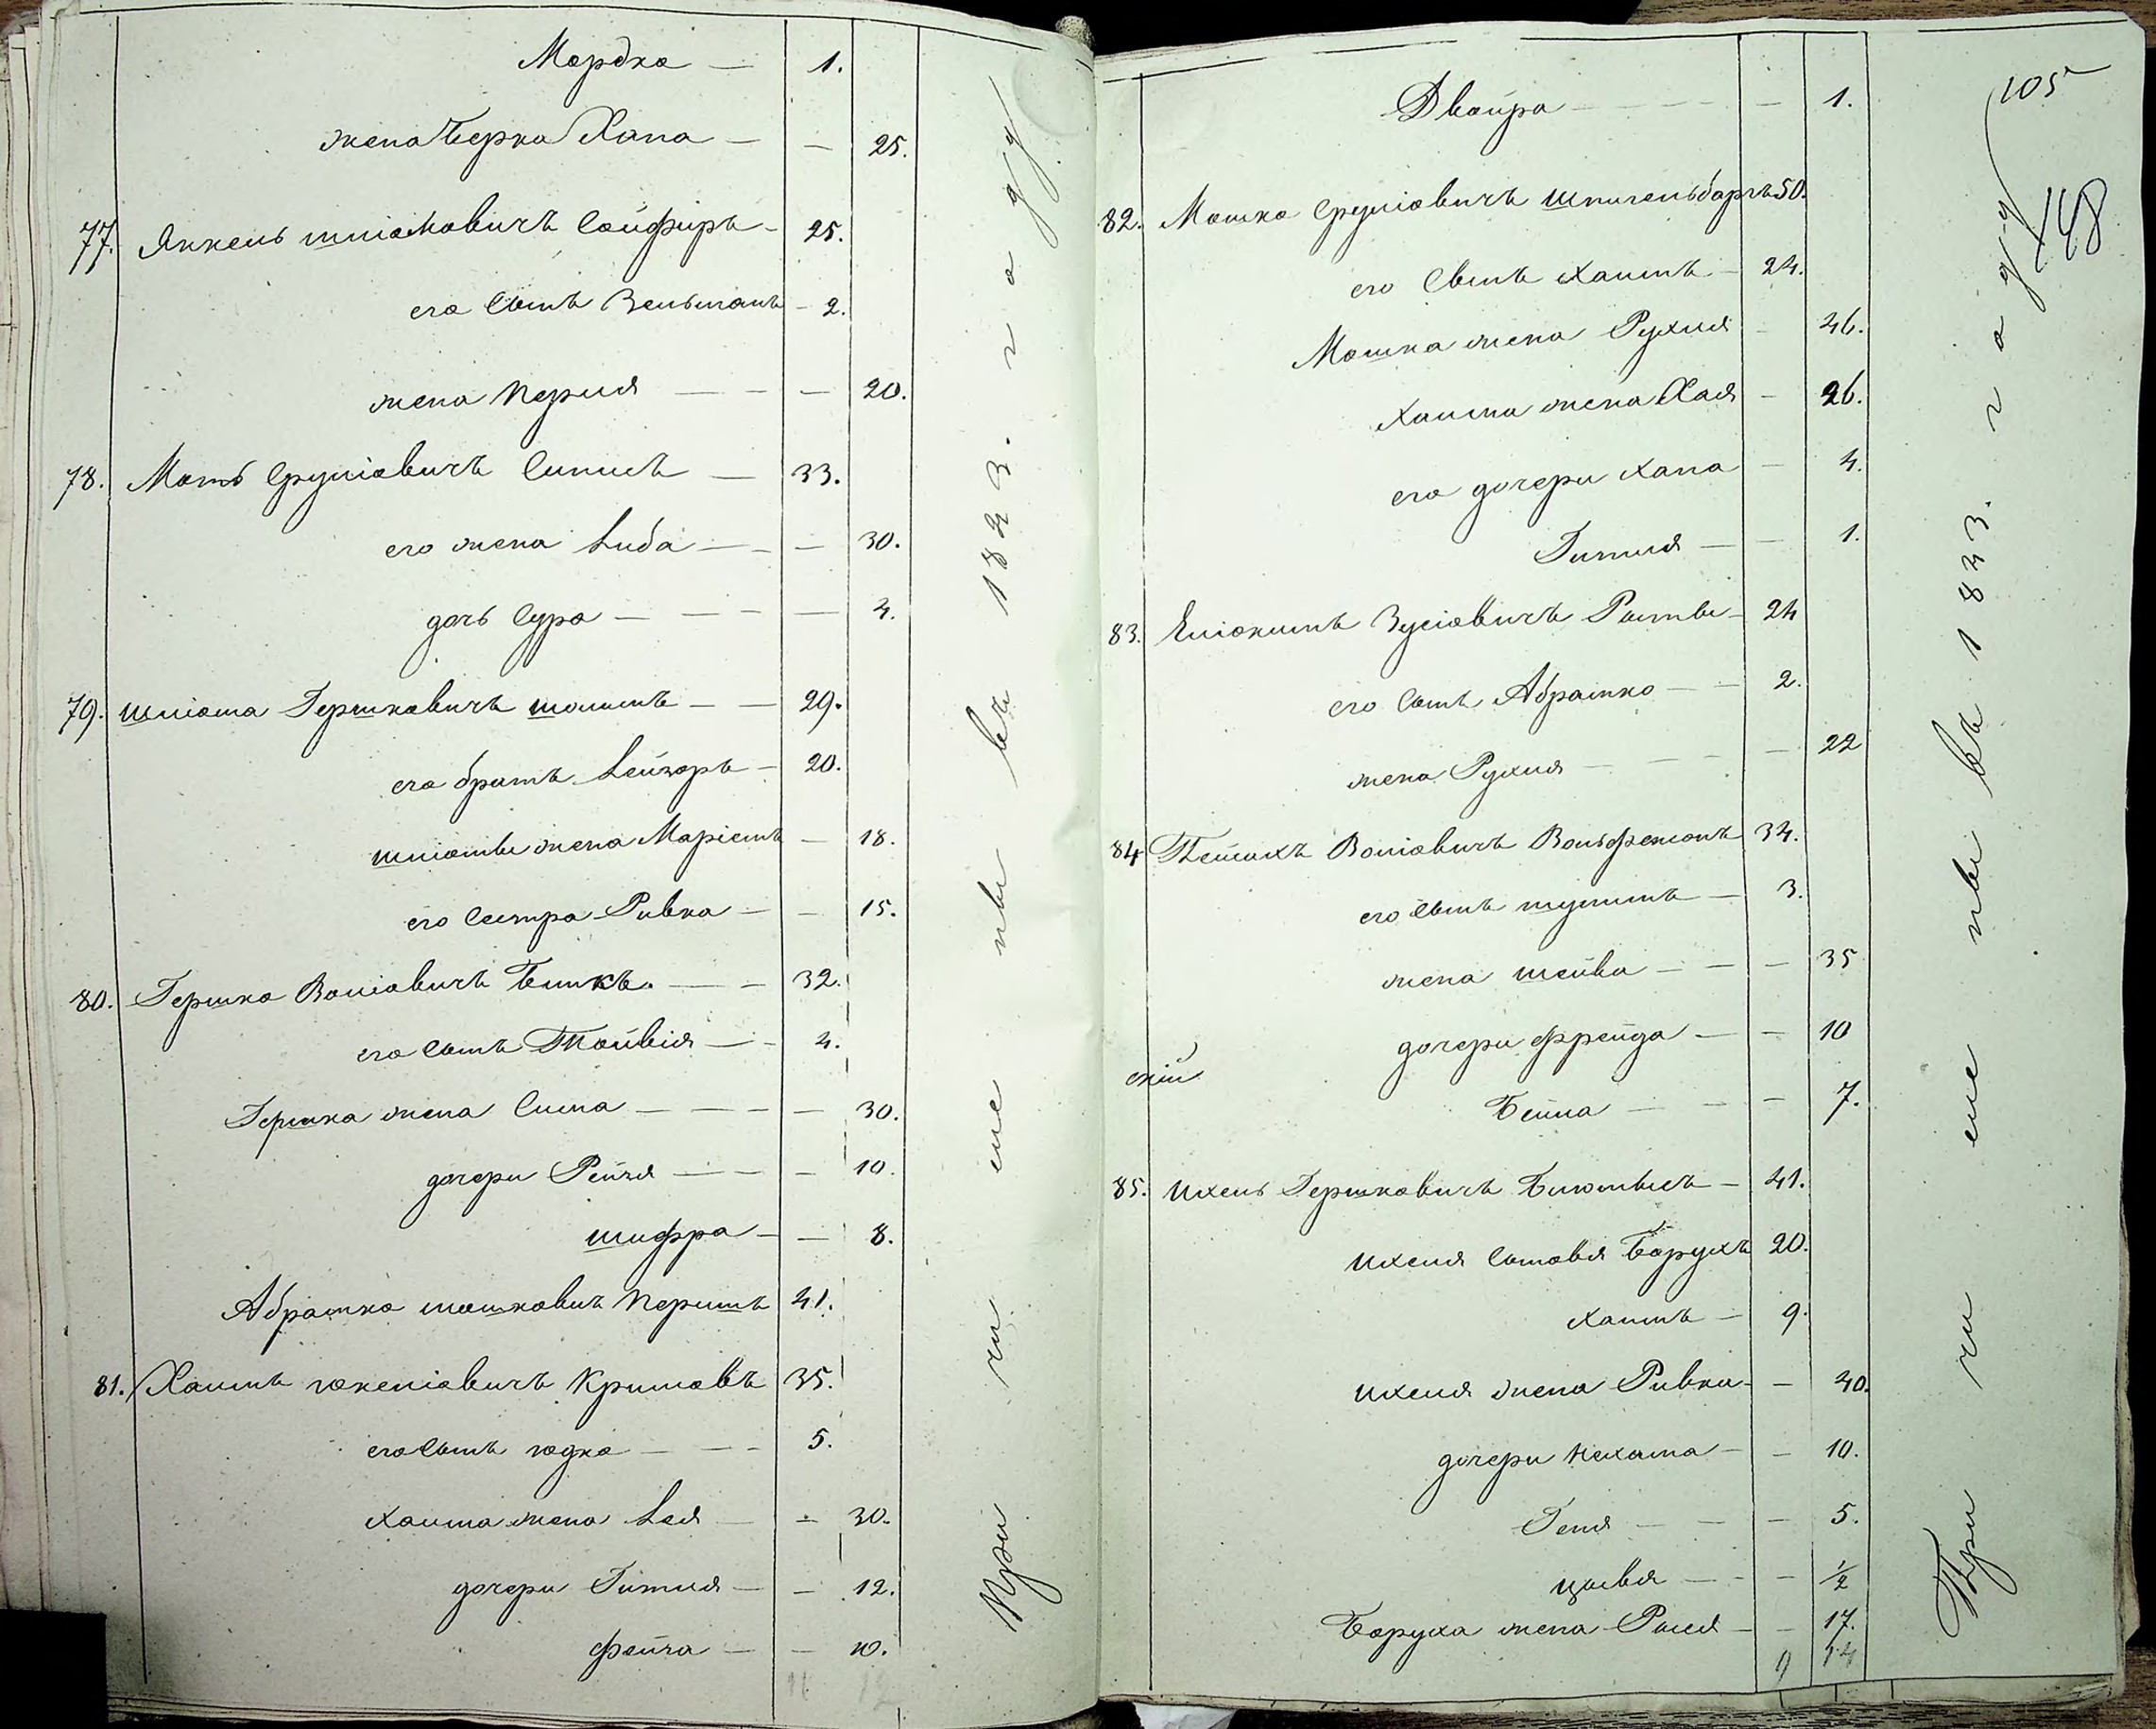 Мордко — 1.
жена Берка Хана — — 25.
77. Янкель Шліомовичъ Сойферъ — 25.
его сынъ Зельманъ — 2.
жена Перля — — — 20.
78. Моть Сруліовичъ — 33.
его жена Либа — — — 30.
дочь Сура — — — — 4.
79. Шліома Гершковичъ — — 29.
его братъ Лейзоръ — 20.
Шліомы жена Маріемъ — 18.
его сестра Ривка — — 15.
80. Гершко Воліовичъ — — 32.
его сынъ Тойвія — — 4.
Гершка жена Сима — — — — 30.
дочери Рейзя — — — 10.
Шифра — — 8.
Абрамко Мошковичъ 41.
81. Хаимъ Юкеліовичъ Кримовъ 35.
его сынъ Юдко — — — 5.
Хаима жена Лея — — 30.
дочери Гитля — — 12.
Фейга — — 10.
При чи сле ны въ 1843. г о д у
11 12
105
148
Двойра — — — — — 1.
82. Мошко Сруліовичъ Шпигельбаргъ 50.
его сынъ Хаимъ — 24.
Мошка жена Рухля — 46.
Хаима жена Хая — 26.
его дочери Хана — 4.
Гитля — — 1.
83. Еліокимъ Зусіовичъ — 24
его сынъ Абрамко — — 2.
жена Рухля — — — — 22
84 Пейсахъ Воліовичъ Вольфензонъ 34.
его сынъ Шулимъ — 3.
жена Шейва — — — 35
дочери Фрейда — — 10
скій
Бейла — — — 7.
85. Ихель Гершковичъ — 41.
Ихеля сыновья Борухъ 20.
Хаимъ — 9.
Ихеля жена Ривка — — 40.
дочери Нехама — — 10.
Геня — — — 5.
Цывья — — — 1/2
Боруха жена Рыся — — 17.
9 14
При чи сле ны въ 1843. г о д у